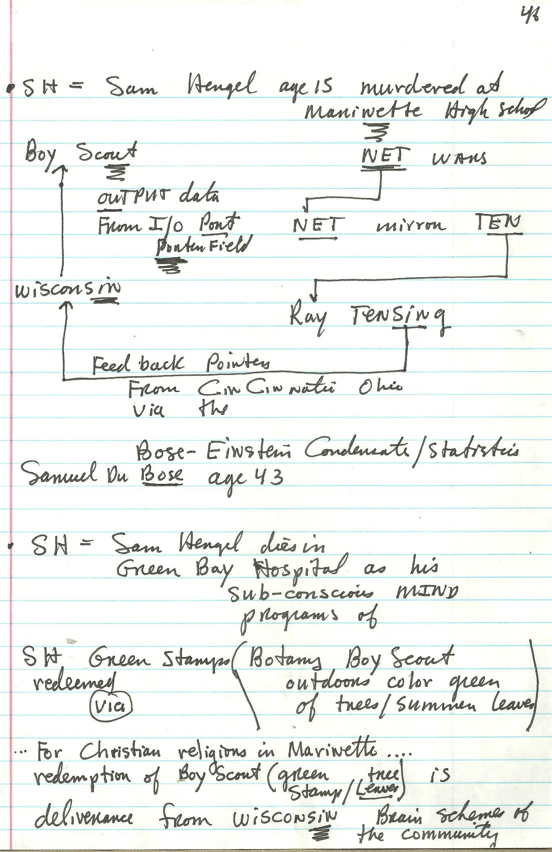 46
• SH = Sam Hengel age 15 murdered at
Marinette High School
Boy Scout
NET WARS
OUTPUT data
From I/O Port
PorterField
NET mirror TEN
WISCONSIN
Ray TENSING
Feed back Pointers
From CinCinnatti Ohio
via the
Bose-Einstein Condensate/Statistics
Samuel Du Bose age 43
• SH = Sam Hengel dies in
Green Bay Hospital as his
sub-conscious MIND
programs of
SH Green Stamps (Botany Boy Scout
redeemed outdoors color green
via of trees/summer leaves)
... For Christian religions in Marinette ....
redemption of Boy Scout (green tree
Stamp/Leaves) is
deliverance from WISCONSIN Brain schemes of
the community